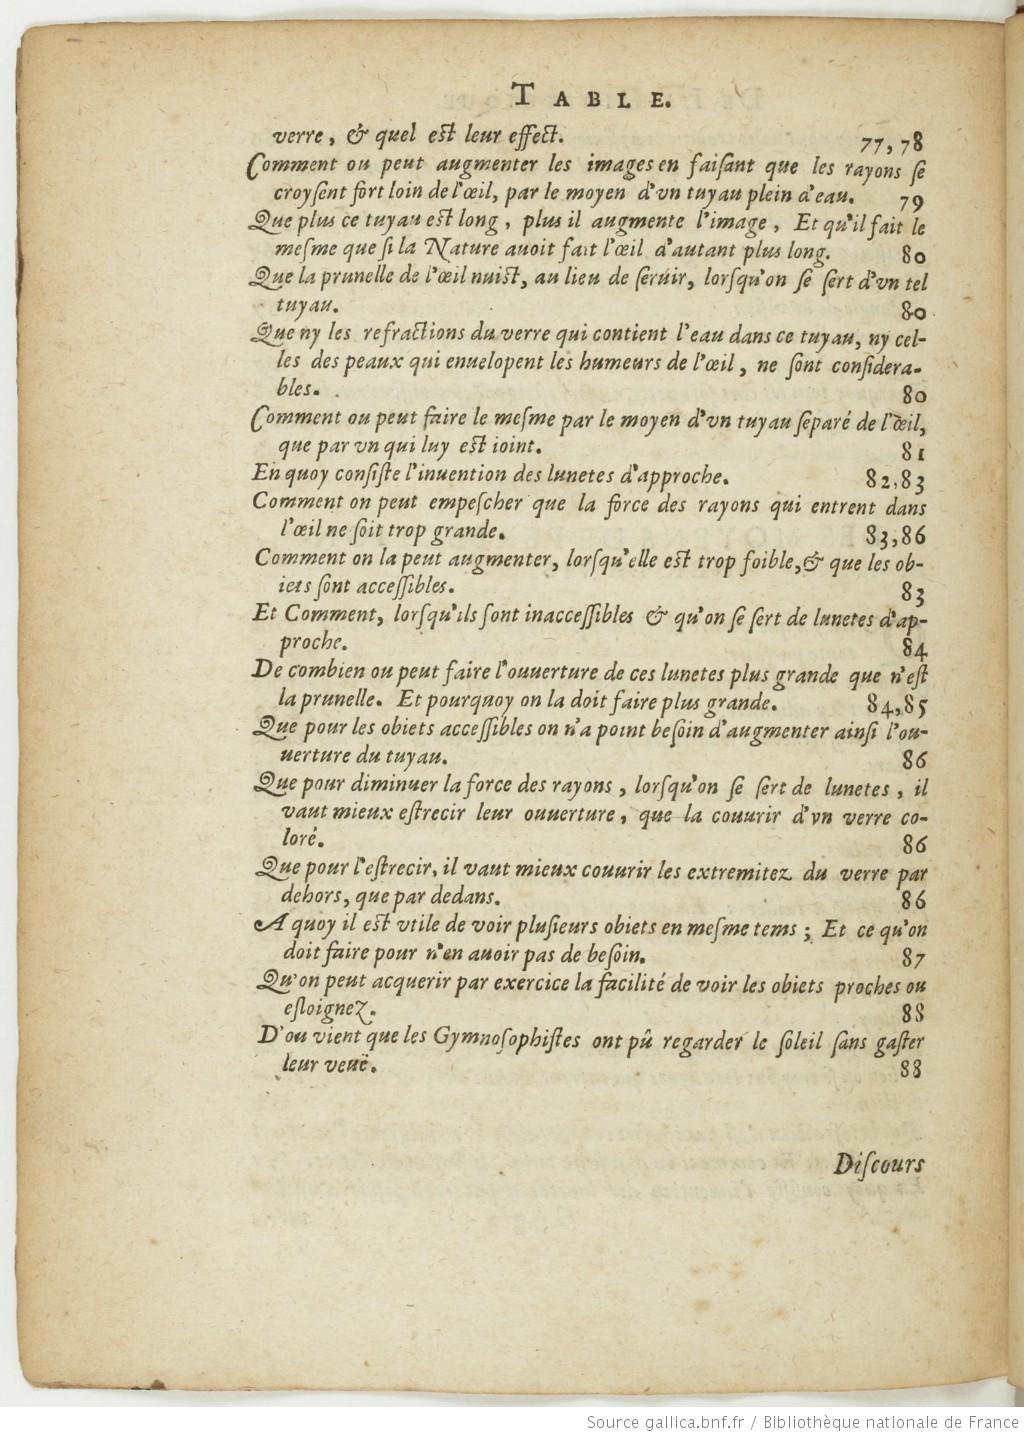 TABLE.
verre, & quel est leur effect. 77, 78
Comment ou peut augmenter les images en faiſant que les rayons ſe
croyſent fort loin de l'œil, par le moyen d'vn tuyau plein d'eau. 79
Que plus ce tuyau est long, plus il augmente l'image, Et qu'il fait le
meſme que ſi la Nature auoit fait l'œil d'autant plus long. 80
Que la prunelle de l'œil nuist, au lieu de ſeruir, lorſqu'on ſe ſert d'vn tel
tuyau. 80
Que ny les refractions du verre qui contient l'eau dans ce tuyau, ny cel-
les des peaux qui enuelopent les humeurs de l'œil, ne ſont conſidera-
bles. 80
Comment ou peut faire le meſme par le moyen d'vn tuyau ſeparé de l'œil,
que par vn qui luy est ioint. 81
En quoy conſiſte l'inuention des lunetes d'approche. 82,83
Comment on peut empeſcher que la force des rayons qui entrent dans
l'œil ne ſoit trop grande. 83,86
Comment on la peut augmenter, lorſqu'elle est trop foible, & que les ob-
iets ſont acceſſibles. 83
Et Comment, lorſqu'ils ſont inacceſſibles & qu'on ſe ſert de lunetes d'ap-
proche. 84
De combien ou peut faire l'ouuerture de ces lunetes plus grande que n'eſt
la prunelle. Et pourquoy on la doit faire plus grande. 84,85
Que pour les obiets acceſſibles on n'a point beſoin d'augmenter ainſi l'ou-
uerture du tuyau. 86
Que pour diminuer la force des rayons, lorſqu'on ſe ſert de lunetes, il
vaut mieux eſtrecir leur ouuerture, que la couurir d'vn verre co-
loré. 86
Que pour l'eſtrecir, il vaut mieux couurir les extremitez du verre par
dehors, que par dedans. 86
A quoy il est vtile de voir pluſieurs obiets en meſme tems; Et ce qu'on
doit faire pour n'en auoir pas de beſoin. 87
Qu'on peut acquerir par exercice la facilité de voir les obiets proches ou
eſloignez. 88
D'ou vient que les Gymnoſophiſtes ont pû regarder le ſoleil ſans gaſter
leur veuë. 88
Diſcours
Source gallica.bnf.fr / Bibliothèque nationale de France